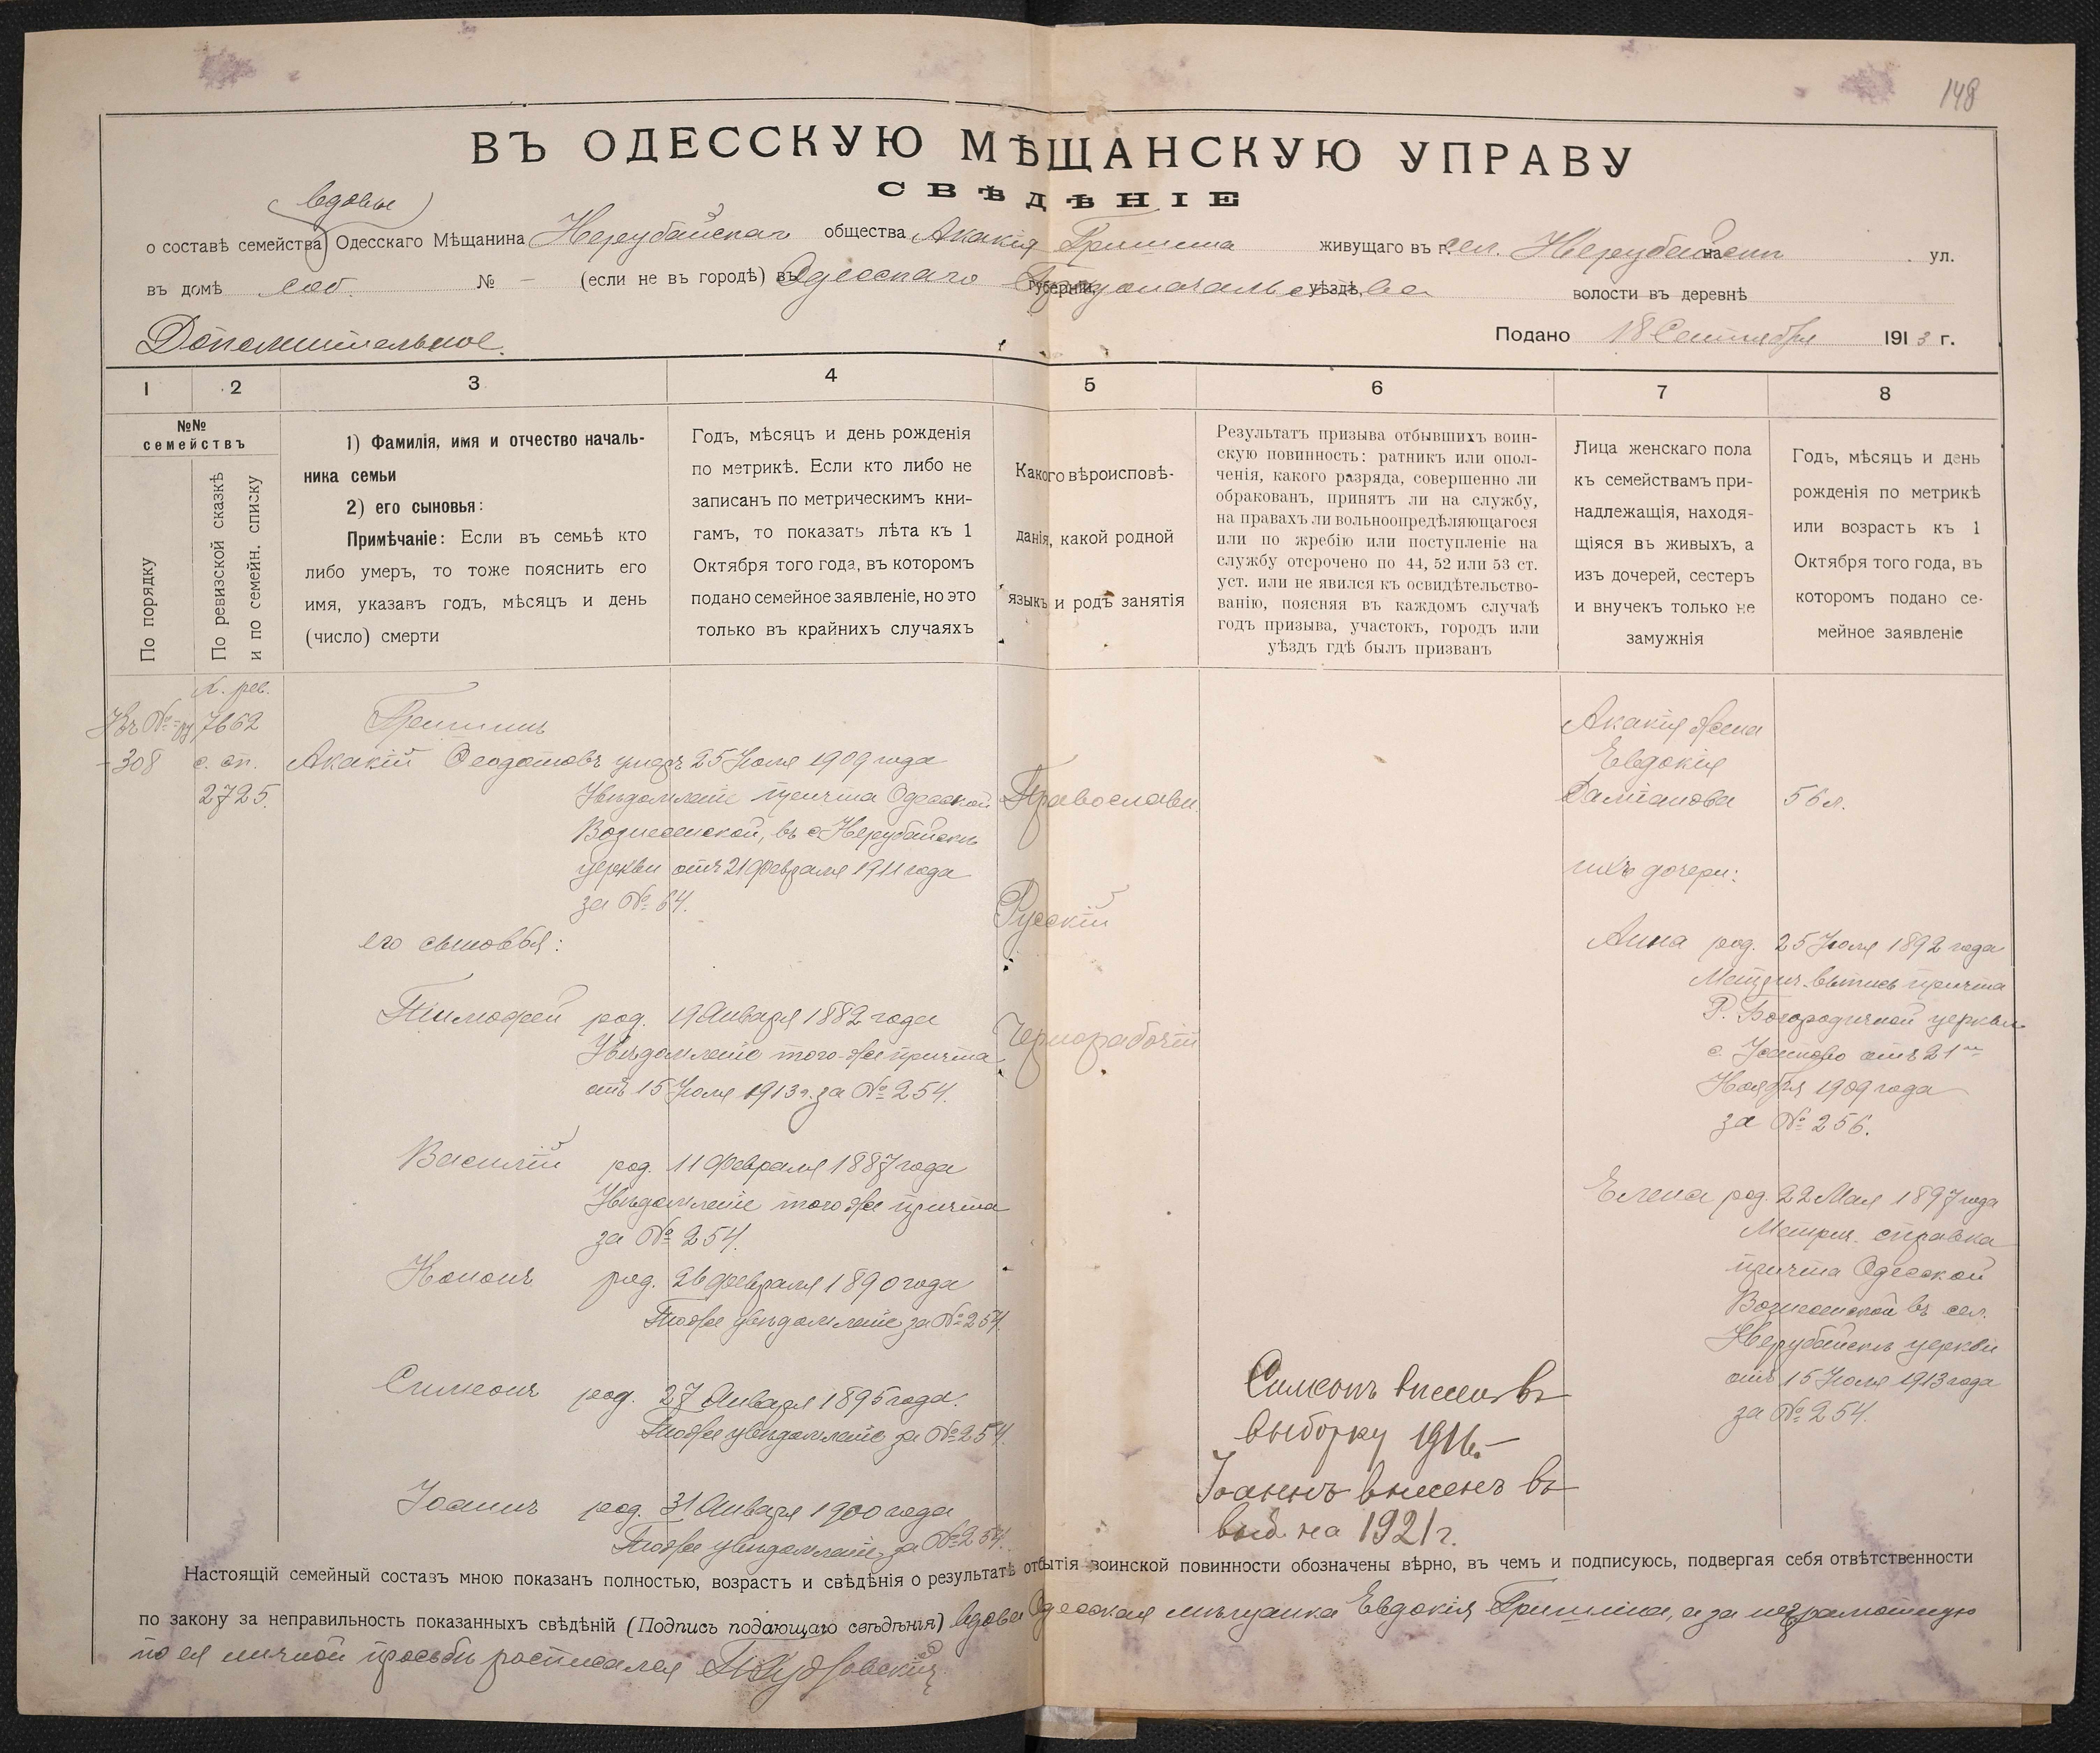 148
ВЪ ОДЕССКУЮ МѢЩАНСКУЮ УПРАВУ
СВѢДѢНІЕ
вдовы
о составѣ семейства Одесскаго Мѣщанина Нерубайскаго общества Акакія Гришина живущаго въ г. сел. Нерубайскѣ на ул.
въ домѣ соб. № – (если не въ городѣ) въ Одесскаго Градоначальства губерніи, уѣздѣ, волости въ деревнѣ
Дополнительное.
Подано 18 Сентября 1913 г.
1 2 3 4 5 6 7 8
№№ семействъ
По порядку
По ревизской сказкѣ
и по семейн. списку
1) Фамилія, имя и отчество началь-
ника семьи
2) его сыновья:
Примѣчаніе: Если въ семьѣ кто
либо умеръ, то тоже пояснить его
имя, указавъ годъ, мѣсяцъ и день
(число) смерти
Годъ, мѣсяцъ и день рожденія
по метрикѣ. Если кто либо не
записанъ по метрическимъ кни-
гамъ, то показать лѣта къ 1
Октября того года, въ которомъ
подано семейное заявленіе, но это
только въ крайнихъ случаяхъ
Какого вѣроисповѣ-
данія, какой родной
языкъ и родъ занятія
Результатъ призыва отбывшихъ воин-
скую повинность: ратникъ или опол-
ченія, какого разряда, совершенно ли
обракованъ, принятъ ли на службу,
на правахъ ли вольноопредѣляющагося
или по жребію или поступленіе на
службу отсрочено по 44, 52 или 53 ст.
уст. или не явился къ освидѣтельство-
ванію, поясняя въ каждомъ случаѣ
годъ призыва, участокъ, городъ или
уѣздъ гдѣ былъ призванъ
Лица женскаго пола
къ семействамъ при-
надлежащія, находя-
щіяся въ живыхъ, а
изъ дочерей, сестеръ
и внучекъ только не
замужнія
Годъ, мѣсяцъ и день
рожденія по метрикѣ
или возрастъ къ 1
Октября того года, въ
которомъ подано се-
мейное заявленіе
Къ №
308
рев.
7662
с. сп.
2725.
Гришинъ
Акакій Феодотовъ умеръ 25 Іюля 1909 года
Увѣдомленіе причта Одесской
Вознесенской, въ с. Нерубайскѣ
церкви отъ 21 Февраля 1911 года
за № 64.
его сыновья:
Тимофей род. 19 Января 1882 года
Увѣдомленіе того-же причта
отъ 15 Іюля 1913 г. за № 254.
Василій род. 11 Февраля 1887 года
Увѣдомленіе того же причта
за № 254.
Кононъ род. 26 февраля 1890 года
Тоже увѣдомленіе за № 254.
Симеонъ род. 27 Января 1895 года.
Тоже увѣдомленіе за № 254.
Іоаннъ род. 31 Января 1900 года
Тоже увѣдомленіе за № 254.
Православн.
Русскій
Чернорабочій
Симеонъ внесенъ въ
выборку 1916 г.
Іоаннъ внесенъ въ
выб. на 1921 г.
Акакія жена
Евдокія
Даміанова 56 л.
ихъ дочери:
Анна род. 25 Іюля 1892 года
Метрич. выпись причта
Р. Богородичной церкви
с. Усатово отъ 21 го
Ноября 1909 года
за № 256.
Елена род. 22 Мая 1897 года
Метрич. справка
причта Одесской
Вознесенской въ сел.
Нерубайскѣ церкви
отъ 15 Іюля 1913 года
за № 254.
Настоящій семейный составъ мною показанъ полностью, возрастъ и свѣдѣнія о результатѣ отбытія воинской повинности обозначены вѣрно, въ чемъ и подписуюсь, подвергая себя отвѣтственности
по закону за неправильность показанныхъ свѣдѣній (Подпись подающаго свѣдѣнія) вдова Одесская мѣщанка Евдокія Гришина, а за неграмотную
по ея личной просьбѣ росписался